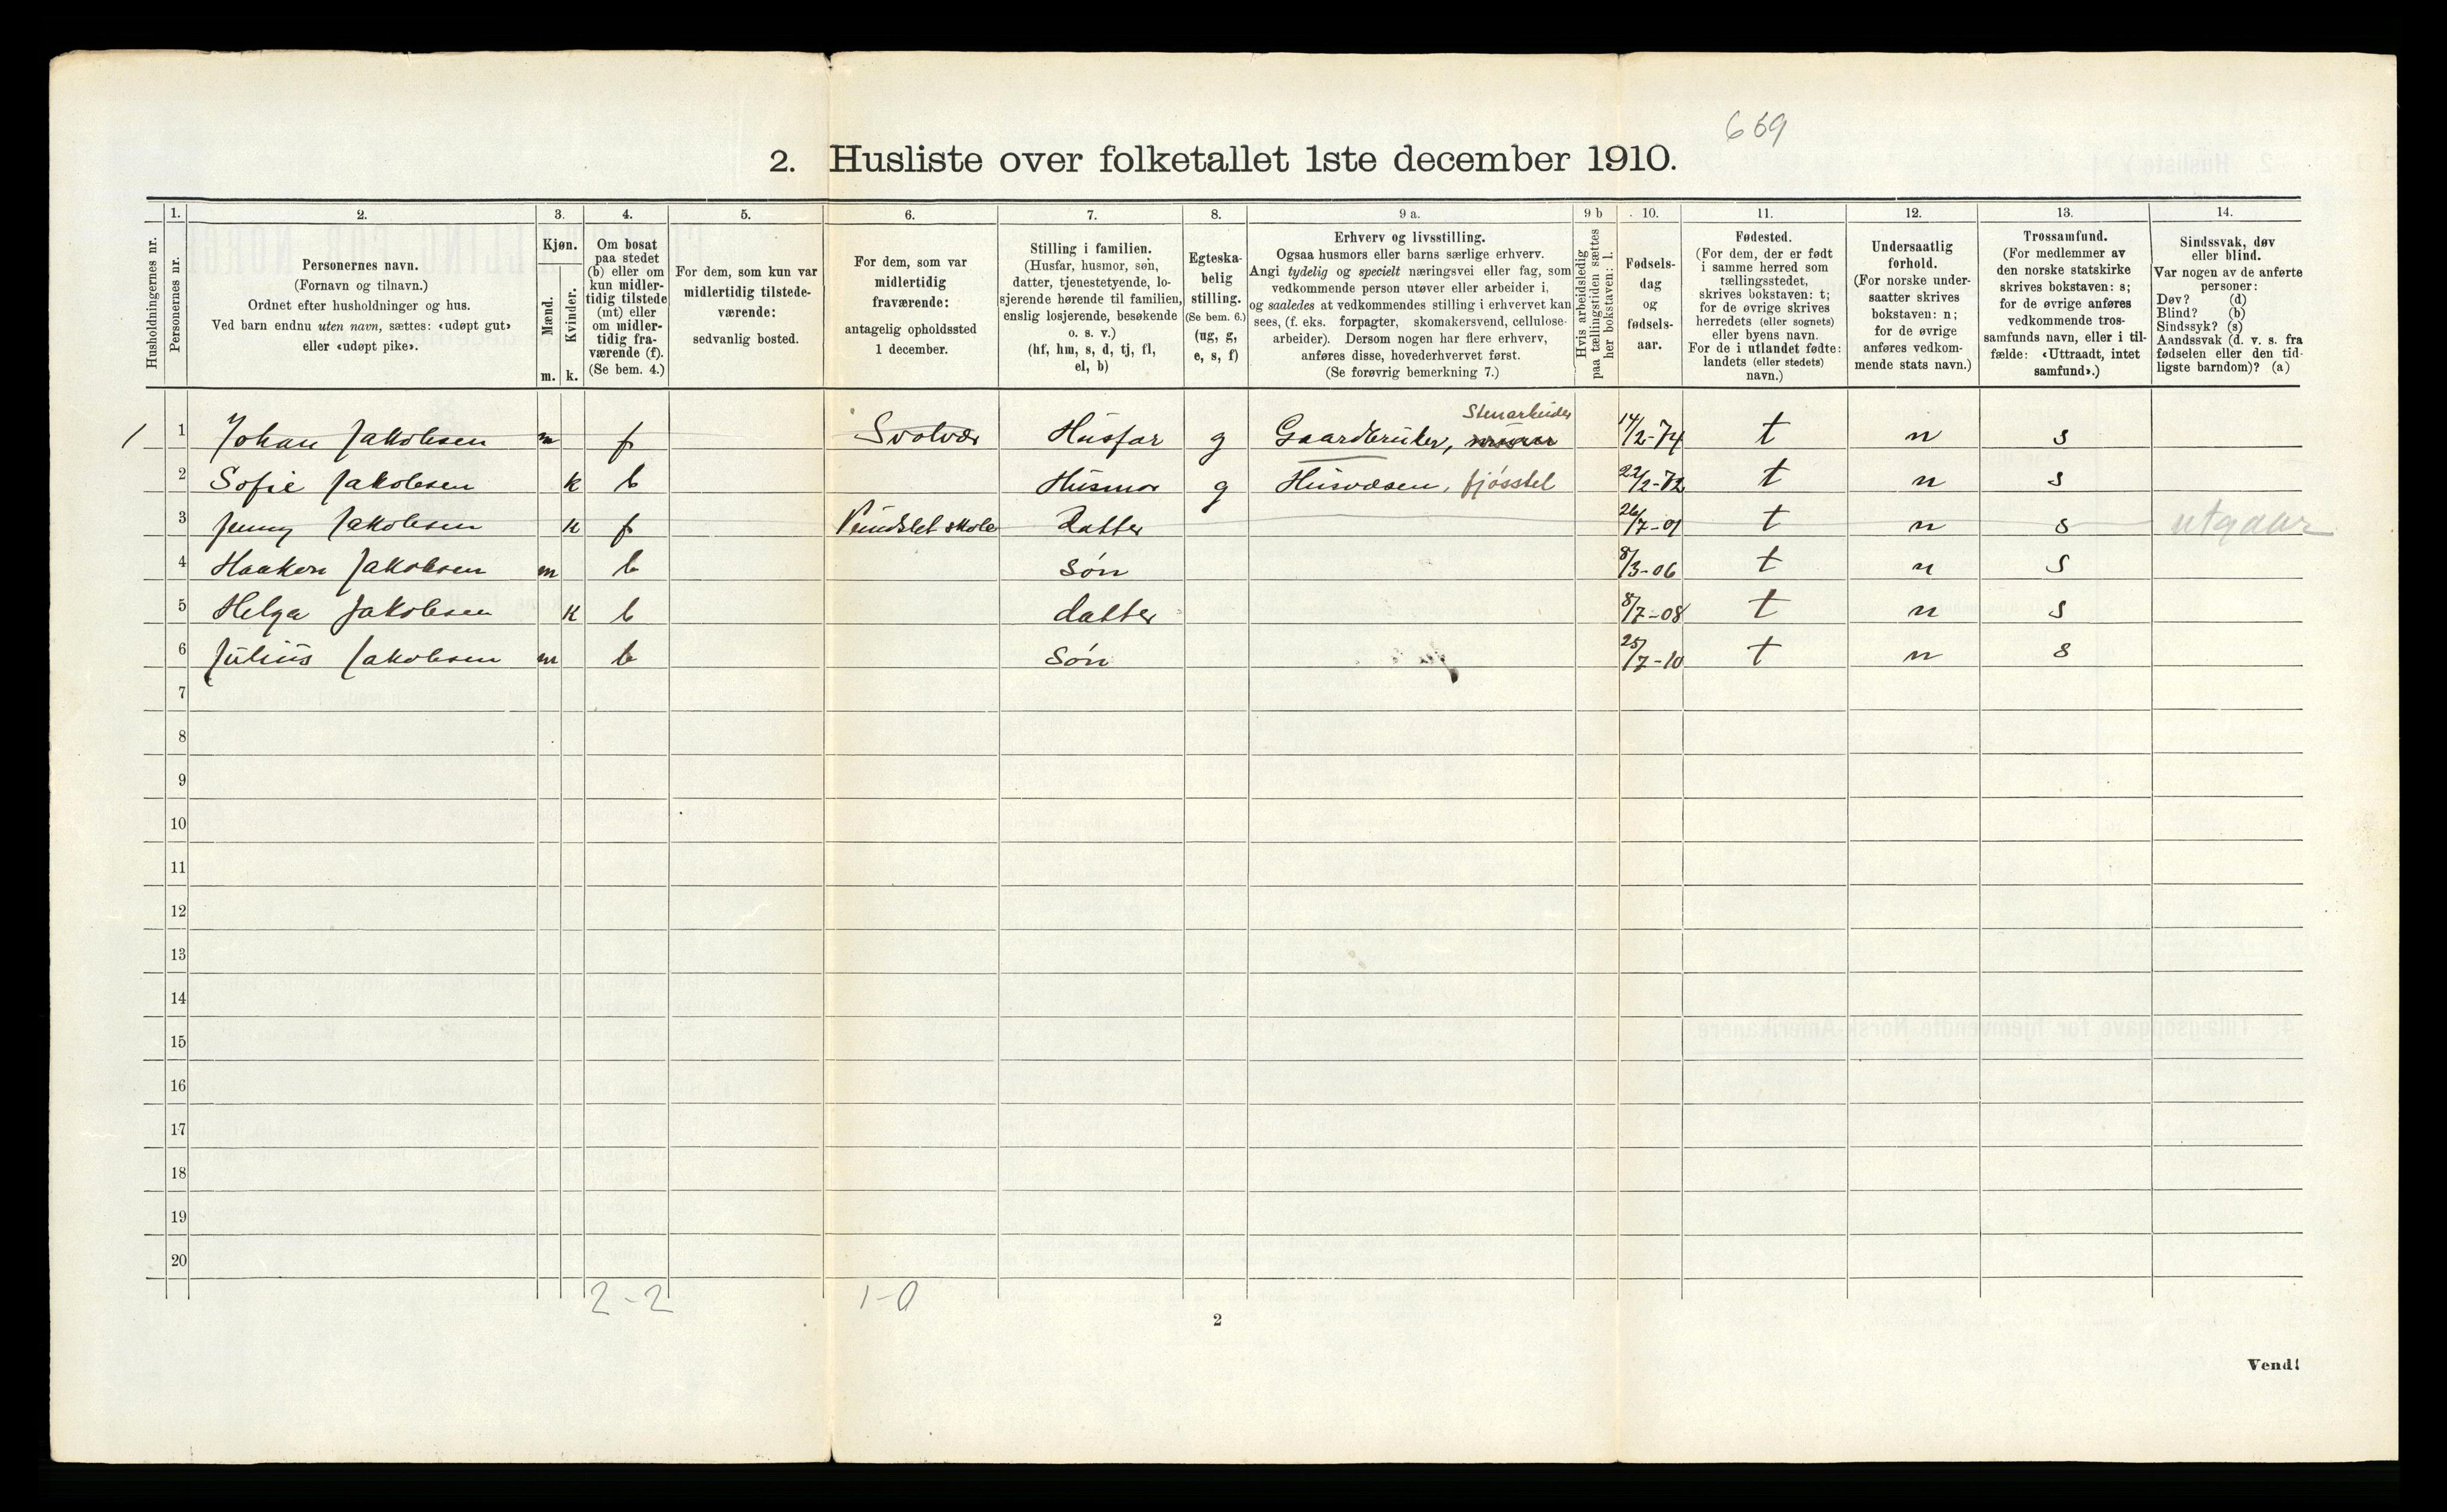 659
2. Husliste over folketallet 1ste december 1910.
Husholdningernes nr.
1.
Personernes nr.
2.
Personernes navn.
(Fornavn og tilnavn.)
Ordnet efter husholdninger og hus.
Ved barn endnu uten navn, sættes: «udøpt gut»
eller «udøpt pike».
3.
Kjøn.
Mænd.
Kvinder.
m. k.
4.
Om bosat
paa stedet
(b) eller om
kun midler-
tidig tilstede
(mt) eller
om midler-
tidig fra-
værende (f).
(Se bem. 4.)
5.
For dem, som kun var
midlertidig tilstede-
værende:
sedvanlig bosted.
6.
For dem, som var
midlertidig
fraværende:
antagelig opholdssted
1 december.
7.
Stilling i familien.
(Husfar, husmor, søn,
datter, tjenestetyende, lo-
sjerende hørende til familien,
enslig losjerende, besøkende
o. s. v.)
(hf, hm, s, d, tj, fl,
el, b)
8.
Egteska-
belig
stilling.
(Se bem. 6.)
(ug, g,
e, s, f)
9 a.
Erhverv og livsstilling.
Ogsaa husmors eller barns særlige erhverv.
Angi tydelig og specielt næringsvei eller fag, som
vedkommende person utøver eller arbeider i,
og saaledes at vedkommendes stilling i erhvervet kan
sees, (f. eks. forpagter, skomakersvend, cellulose-
arbeider). Dersom nogen har flere erhverv,
anføres disse, hovederhvervet først.
(Se forøvrig bemerkning 7.)
9 b
Hvis arbeidsledig
paa tællingstiden sættes
her bokstaven: l.
10.
Fødsels-
dag
og
fødsels-
aar.
11.
Fødested.
(For dem, der er født
i samme herred som
tællingsstedet,
skrives bokstaven: t;
for de øvrige skrives
herredets (eller sognets)
eller byens navn.
For de i utlandet fødte:
landets (eller stedets)
navn.)
12.
Undersaatlig
forhold.
(For norske under-
saatter skrives
bokstaven: n;
for de øvrige
anføres vedkom-
mende stats navn.)
13.
Trossamfund.
(For medlemmer av
den norske statskirke
skrives bokstaven: s;
for de øvrige anføres
vedkommende tros-
samfunds navn, eller i til-
fælde: «Uttraadt, intet
samfund».)
14.
Sindssvak, døv
eller blind.
Var nogen av de anførte
personer:
Døv? (d)
Blind? (b)
Sindssyk? (s)
Aandssvak (d. v. s. fra
fødselen eller den tid-
ligste barndom)? (a)
Stenarbeider
1 1 Johan Jakobsen m f Svolvær Husfar g Gaardbruker, 14/2-74 t n s
2 Sofie Jakobsen k b Husmor g Husvæsen, fjøsstel 22/2-72 t n s
3 Jenny Jakobsen k f skole datter 26/7-01 t n s utgaar
4 Haakon Jakobsen m b søn 8/3-06 t n s
5 Helga Jakobsen k b datter 8/7-08 t n s
6 Julius Jakobsen m b søn 25/7-10 t n s
7
8
9
10
11
12
13
14
15
16
17
18
19
20
2-2 1-0
2
Vend!